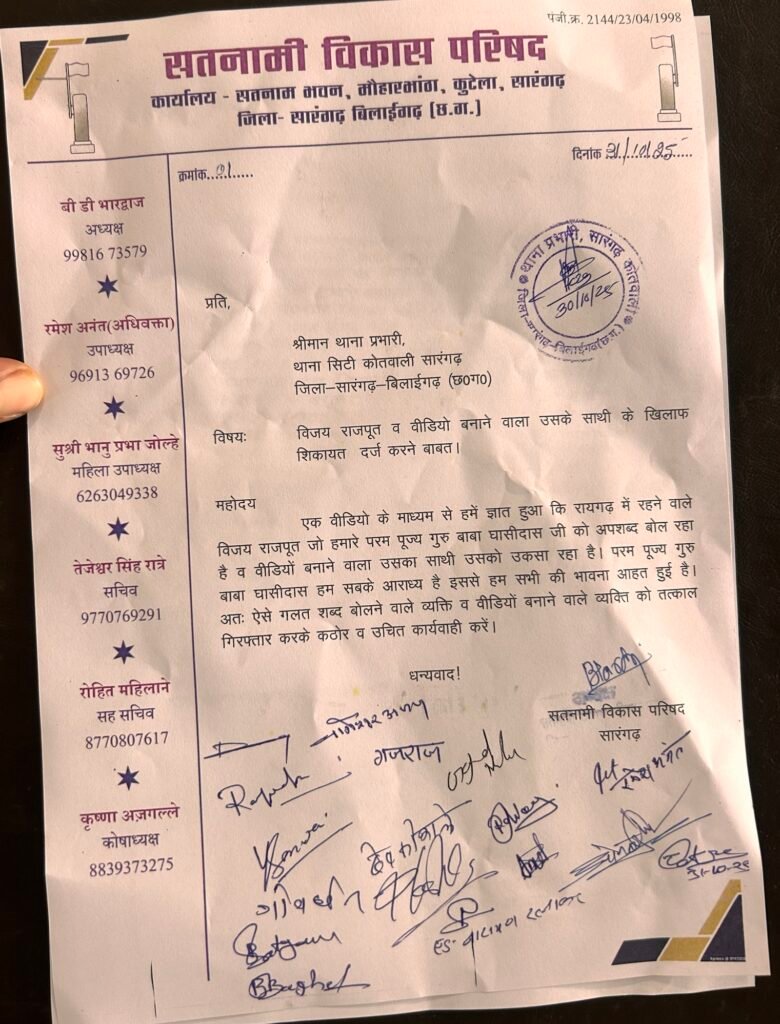 पंजी.क्र. 2144/23/04/1998
सतनामी विकास परिषद
कार्यालय - सतनाम भवन, मौहारभांठा, कुटेला, सारंगढ़
जिला- सारंगढ़ बिलाईगढ़ (छ.ग.)
क्रमांक..01......
दिनांक 31/10/25.....
बी डी भारद्वाज
अध्यक्ष
99816 73579
रमेश अनंत(अधिवक्ता)
उपाध्यक्ष
96913 69726
सुश्री भानु प्रभा जोल्हे
महिला उपाध्यक्ष
6263049338
तेजेश्वर सिंह रात्रे
सचिव
9770769291
रोहित महिलाने
सह सचिव
8770807617
कृष्णा अज़गल्ले
कोषाध्यक्ष
8839373275
थाना प्रभारी, सारंगढ़ कोतवाली
जिला-सारंगढ़-बिलाईगढ़(छ.ग.)
30/10/25
प्रति,
श्रीमान थाना प्रभारी,
थाना सिटी कोतवाली सारंगढ़
जिला–सारंगढ़–बिलाईगढ़ (छ0ग0)
विषयः विजय राजपूत व वीडियो बनाने वाला उसके साथी के खिलाफ
शिकायत दर्ज करने बाबत।
महोदय
एक वीडियो के माध्यम से हमें ज्ञात हुआ कि रायगढ़ में रहने वाले
विजय राजपूत जो हमारे परम पूज्य गुरु बाबा घासीदास जी को अपशब्द बोल रहा
है व वीडियों बनाने वाला उसका साथी उसको उकसा रहा है। परम पूज्य गुरु
बाबा घासीदास हम सबके आराध्य है इससे हम सभी की भावना आहत हुई है।
अतः ऐसे गलत शब्द बोलने वाले व्यक्ति व वीडियों बनाने वाले व्यक्ति को तत्काल
गिरफ्तार करके कठोर व उचित कार्यवाही करें।
धन्यवाद!
सतनामी विकास परिषद
सारंगढ़
गजराज
गोवर्धन
31-10-25
BBaghel